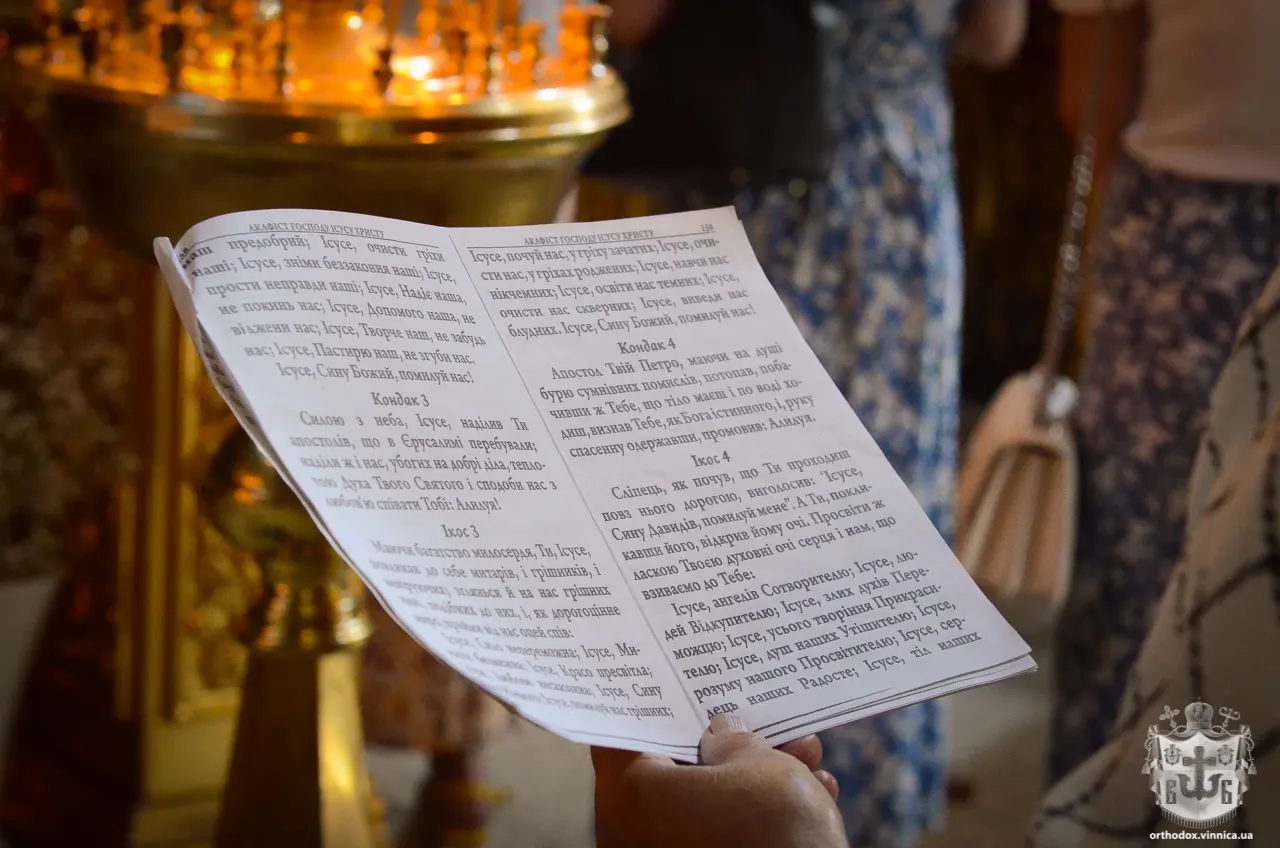 АКАФІСТ ГОСПОДУ ІСУСУ ХРИСТУ
наш предобрий; Ісусе, очисти гріхи
наші; Ісусе, зніми беззаконня наші; Ісусе,
прости неправди наші; Ісусе, Надіє наша,
не покинь нас; Ісусе, Допомого наша, не
віджени нас; Ісусе, Творче наш, не забудь
нас; Ісусе, Пастирю наш, не згуби нас.
Ісусе, Сину Божий, помилуй нас!
Кондак 3
Силою з неба, Ісусе, наділив Ти
апостолів, що в Єрусалимі перебували;
наділи ж і нас, убогих на добрі діла, тепло-
тою Духа Твого Святого і сподоби нас з
любов'ю співати Тобі: Алилуя!
Ікос 3
Маючи багатство милосердя, Ти, Ісусе,
покликав до себе митарів, і грішників, і
зглянься й на нас грішних
подібних до них, і, як дорогоцінне
миро, прийми від нас оцей спів:
Ісусе, Сило непереможна; Ісусе, Ми-
Ісусе, Красо пресвітла;
Ісусе, Сину
помилуй нас грішних;
АКАФІСТ ГОСПОДУ ІСУСУ ХРИСТУ 159
Ісусе, почуй нас, у гріху зачатих; Ісусе, очи-
сти нас, у гріхах роджених; Ісусе, навчи нас
нікчемних; Ісусе, освіти нас темних; Ісусе,
очисти нас скверних; Ісусе, виведи нас
блудних. Ісусе, Сину Божий, помилуй нас!
Кондак 4
Апостол Твій Петро, маючи на душі
бурю сумнівних помислів, потопав, поба-
чивши ж Тебе, що тіло маєш і по воді хо-
диш, визнав Тебе, як Бога істинного, і, руку
спасенну одержавши, промовив: Алилуя.
Ікос 4
Сліпець, як почув, що Ти проходиш
повз нього дорогою, виголосив: "Ісусе,
Сину Давидів, помилуй мене". А Ти, покли-
кавши його, відкрив йому очі. Просвіти ж
ласкою Твоєю духовні очі серця і нам, що
взиваємо до Тебе:
Ісусе, ангелів Сотворителю; Ісусе, лю-
дей Відкупителю; Ісусе, злих духів Пере-
можцю; Ісусе, усього творіння Прикраси-
телю; Ісусе, душ наших Утішителю; Ісусе,
розуму нашого Просвітителю; Ісусе, сер-
дець наших Радосте; Ісусе, тіл наших
orthodox.vinnica.ua